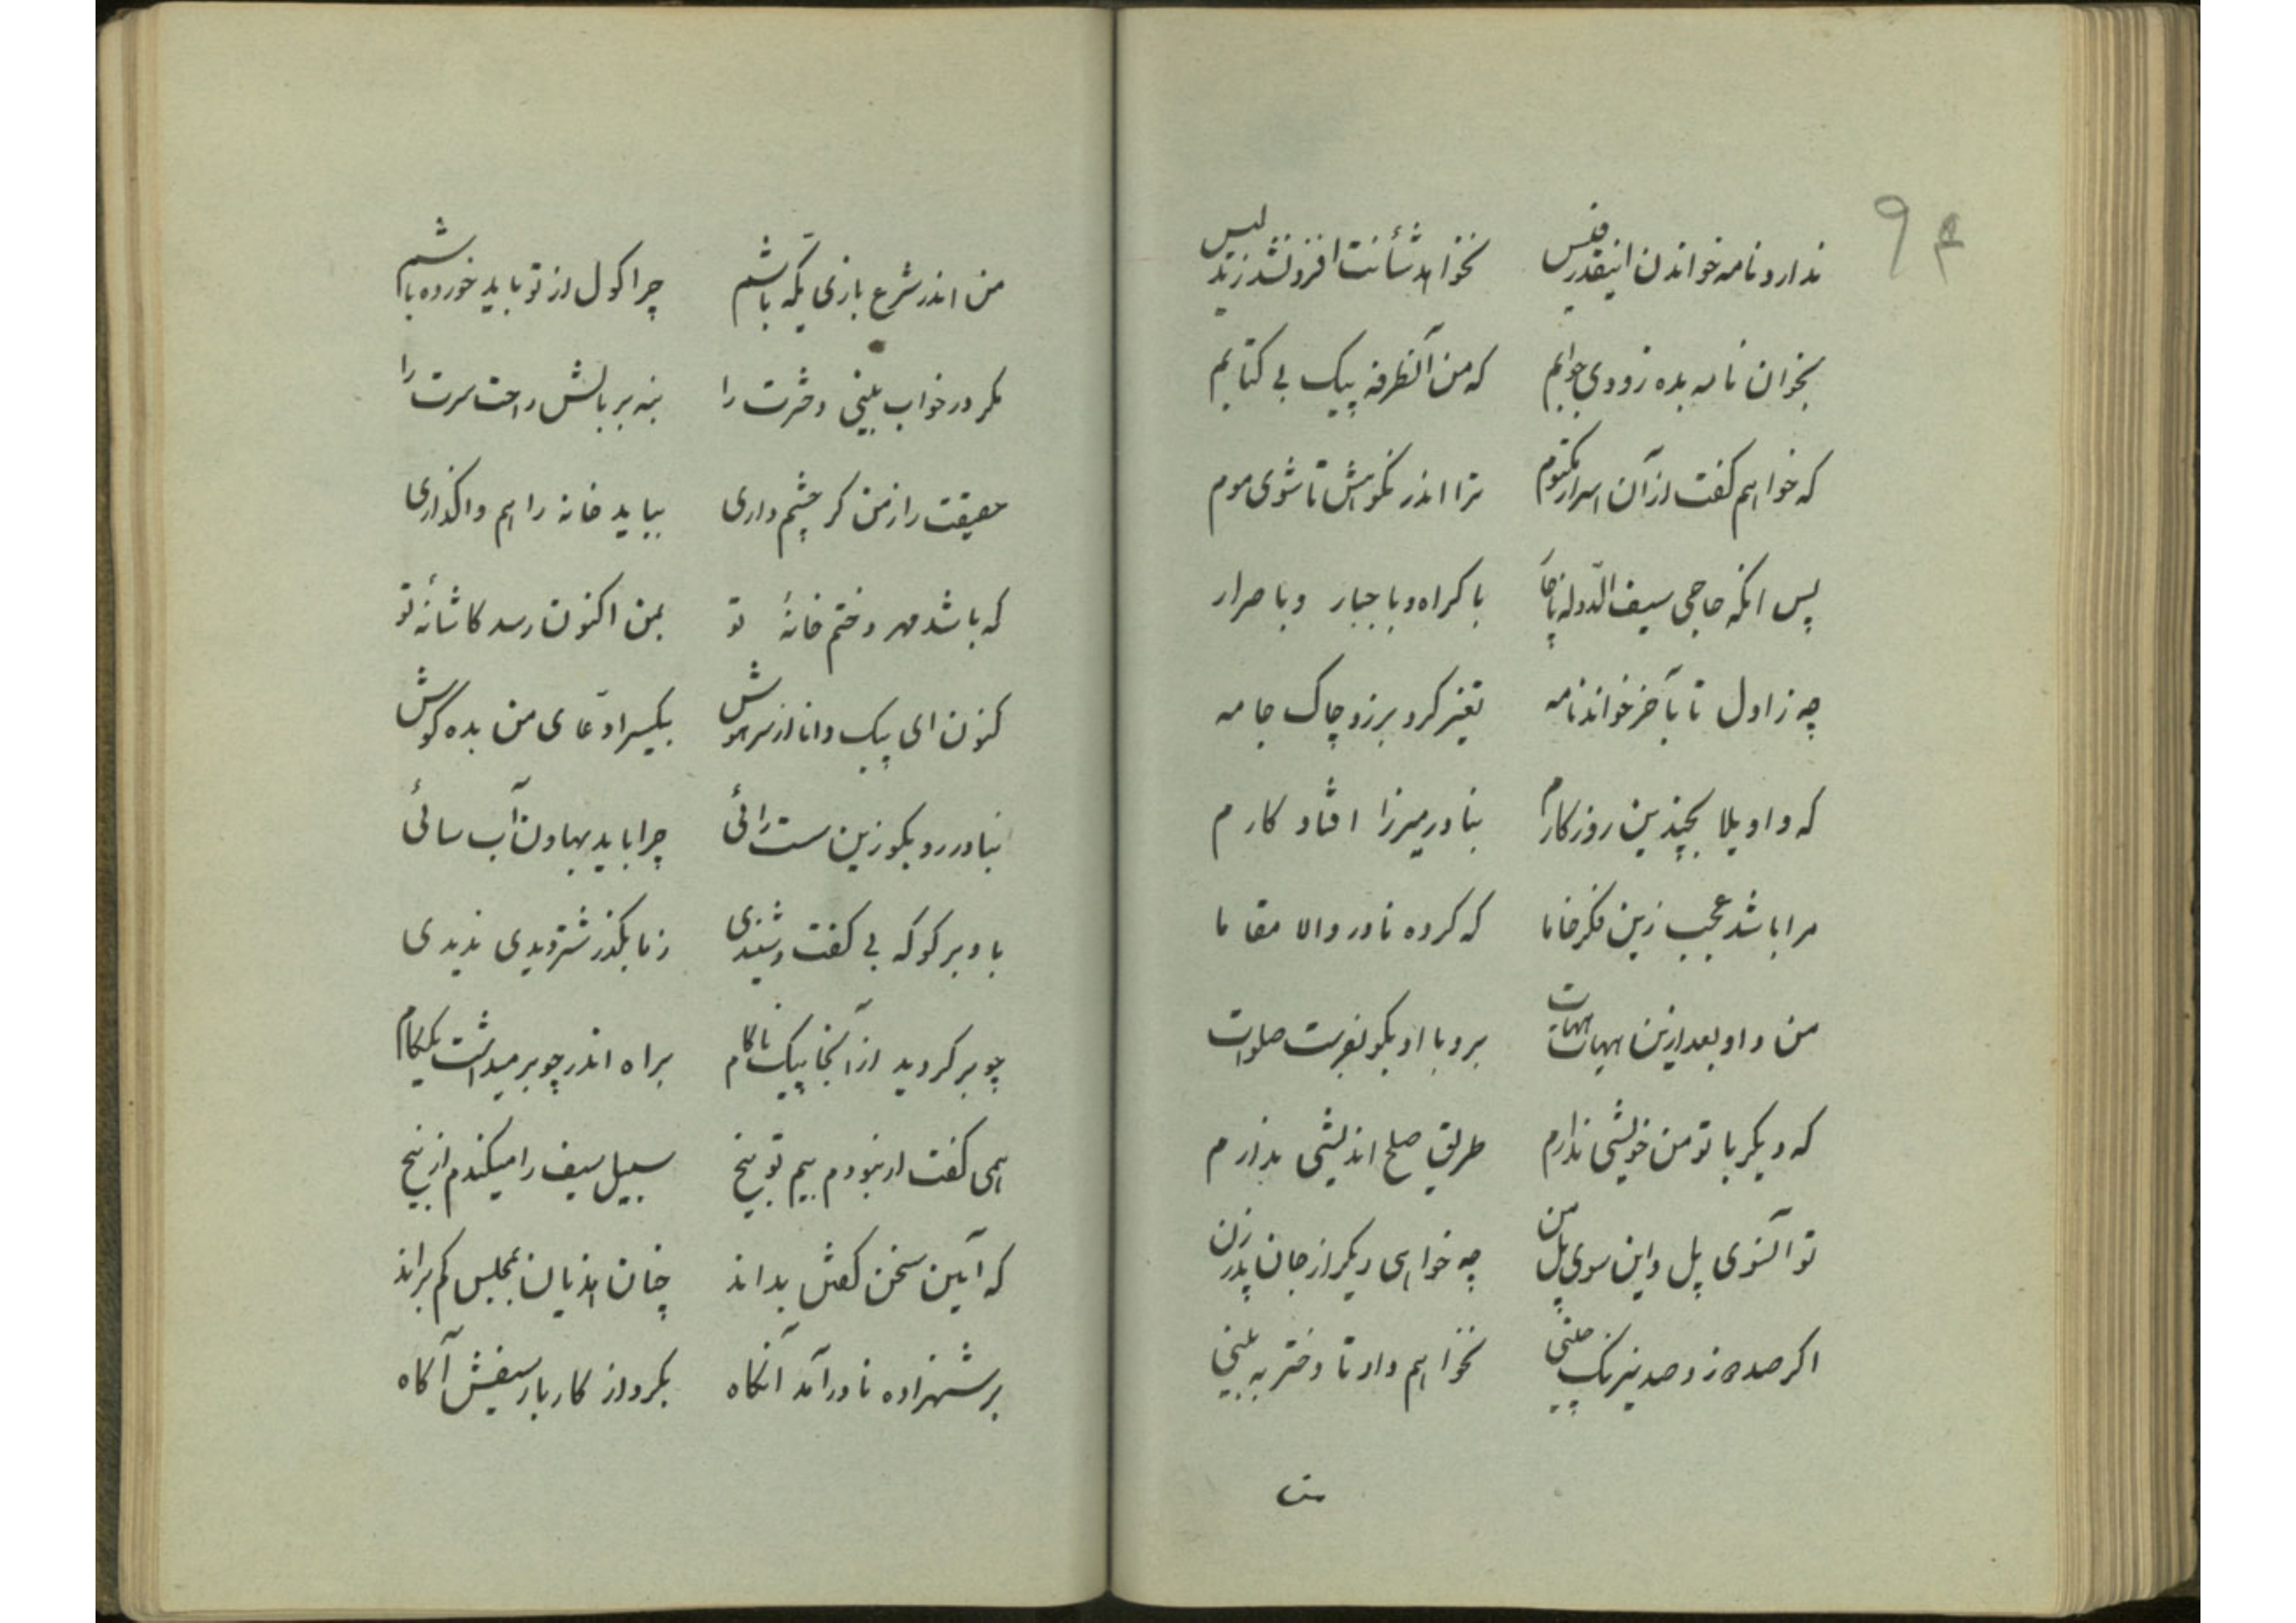 ۹۴
ندارد نامه خواندن اینقدر فیس نخواهد شأنت افزون شد زند لیس
بخوان نامه بده زودی جوابم که من آنطرفه پیک بی کتابم
که خواهم گفت از آن اسرار مکتوم ترا اندر نکوهش تا شوی موم
پس انکه حاجی سیف الدّوله ناچار باکراه و باجبار و باصرار
چه ز اول تا بآخر خواند نامه تغیر کرد برزد چاک جامه
که واویلا بچیذین روزکارم بنادر میرزا افتاد کارم
مرا باشد عجب زین فکر خاما که کرده نادر والا مقاما
من و او بعد ازین هیهات هیهات برو با او بکو بفرست صلوات
که دیکر با تو من خویشی ندارم طریق صلح اندیشی ندارم
تو آنسوی پل و این سوی پل من چه خواهی دیکر از جان پدر زن
اکر صد و صد نیرنک چینی نخواهم داد تا دختر به بینی
من اندر شرع بازی یکّه باشم چرا کول از تو باید خورده باشم
مکر در خواب بینی دخترت را بنه بر بالش راحت سرت را
حقیقت را ز من کر چشم داری بباید خانه را هم واکذاری
که باشد مهر دختم خانهٔ تو بمن اکنون رسد کاشانهٔ تو
کنون ای پیک دانا از سر هوش بیکسر ادّعای من بده کوش
بنادر رو بکو زین سست رائی چرا باید بهاون آب سائی
باو بر کو که بی کفت و شنیدی ز ما بکذر شتر دیدی ندیدی
چو بر کردید از آنجا پیک ناکام براه اندر چو بر میداشت یک کام
همی کفت ار نبودم بیم توبیخ سبیل سیف را میکندم از بیخ
که آیین سخن کفتن بداند چنان هذیان بمجلس کم براند
بر شهزاده نادر آمد آنکاه بکرد از کار بار سیفش آکاه